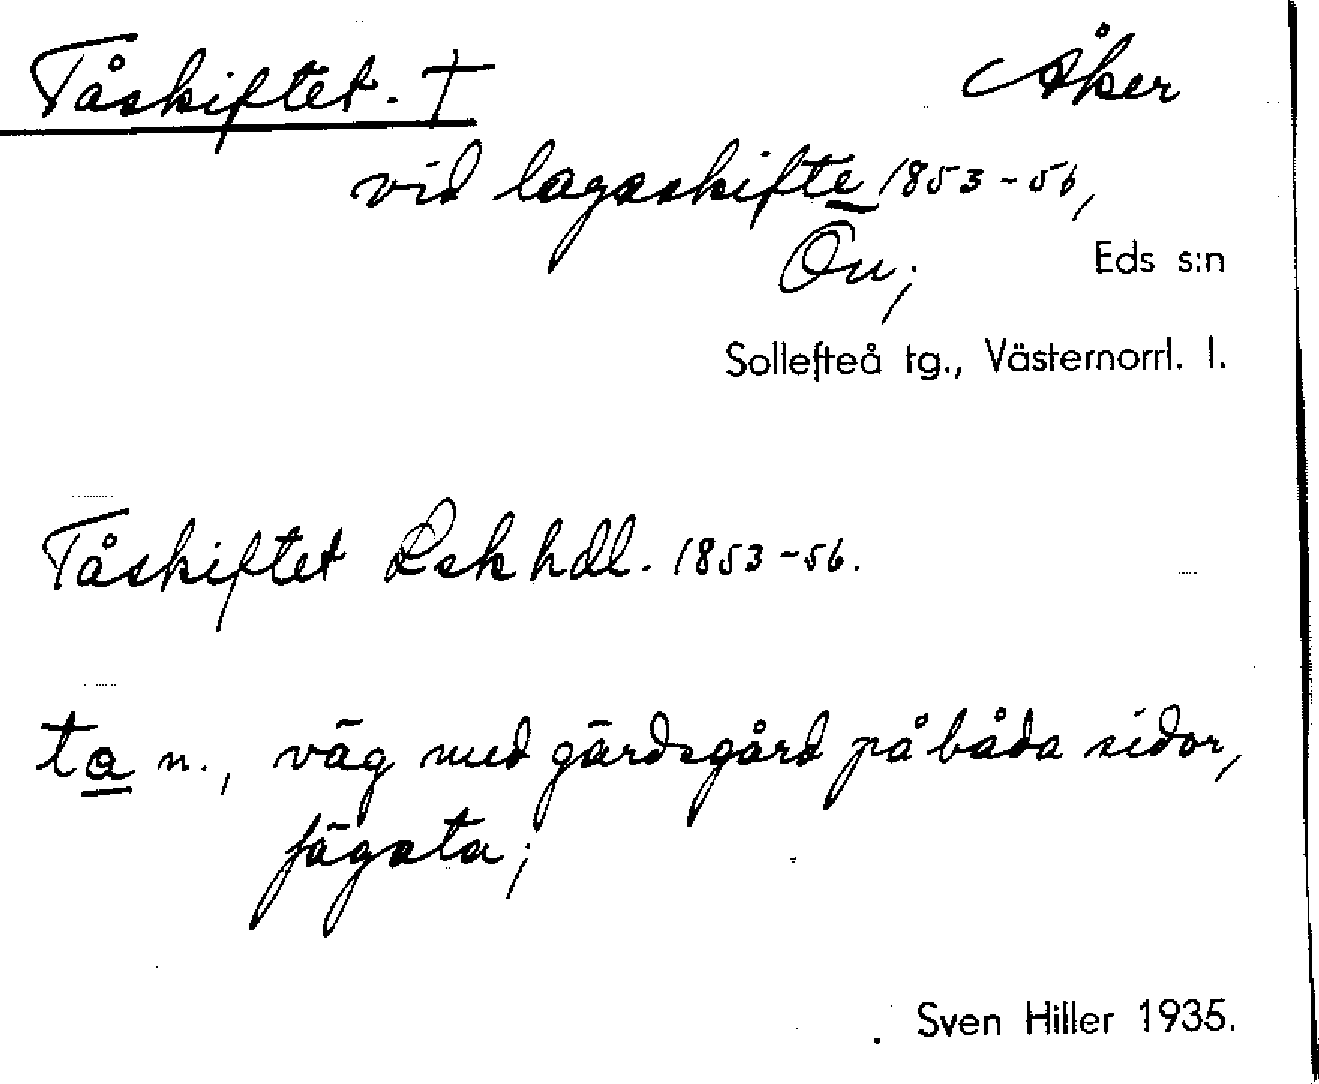 Tåskiftet. † Åker
vid lagaskifte 1853-56,
Ön; Eds s:n
Sollefteå tg., Västernorrl. l.
Tåskiftet Lsk hdl. 1853-56.
ta n., väg med gärdsgård på båda sidor,
fägata;
Sven Hiller 1935.